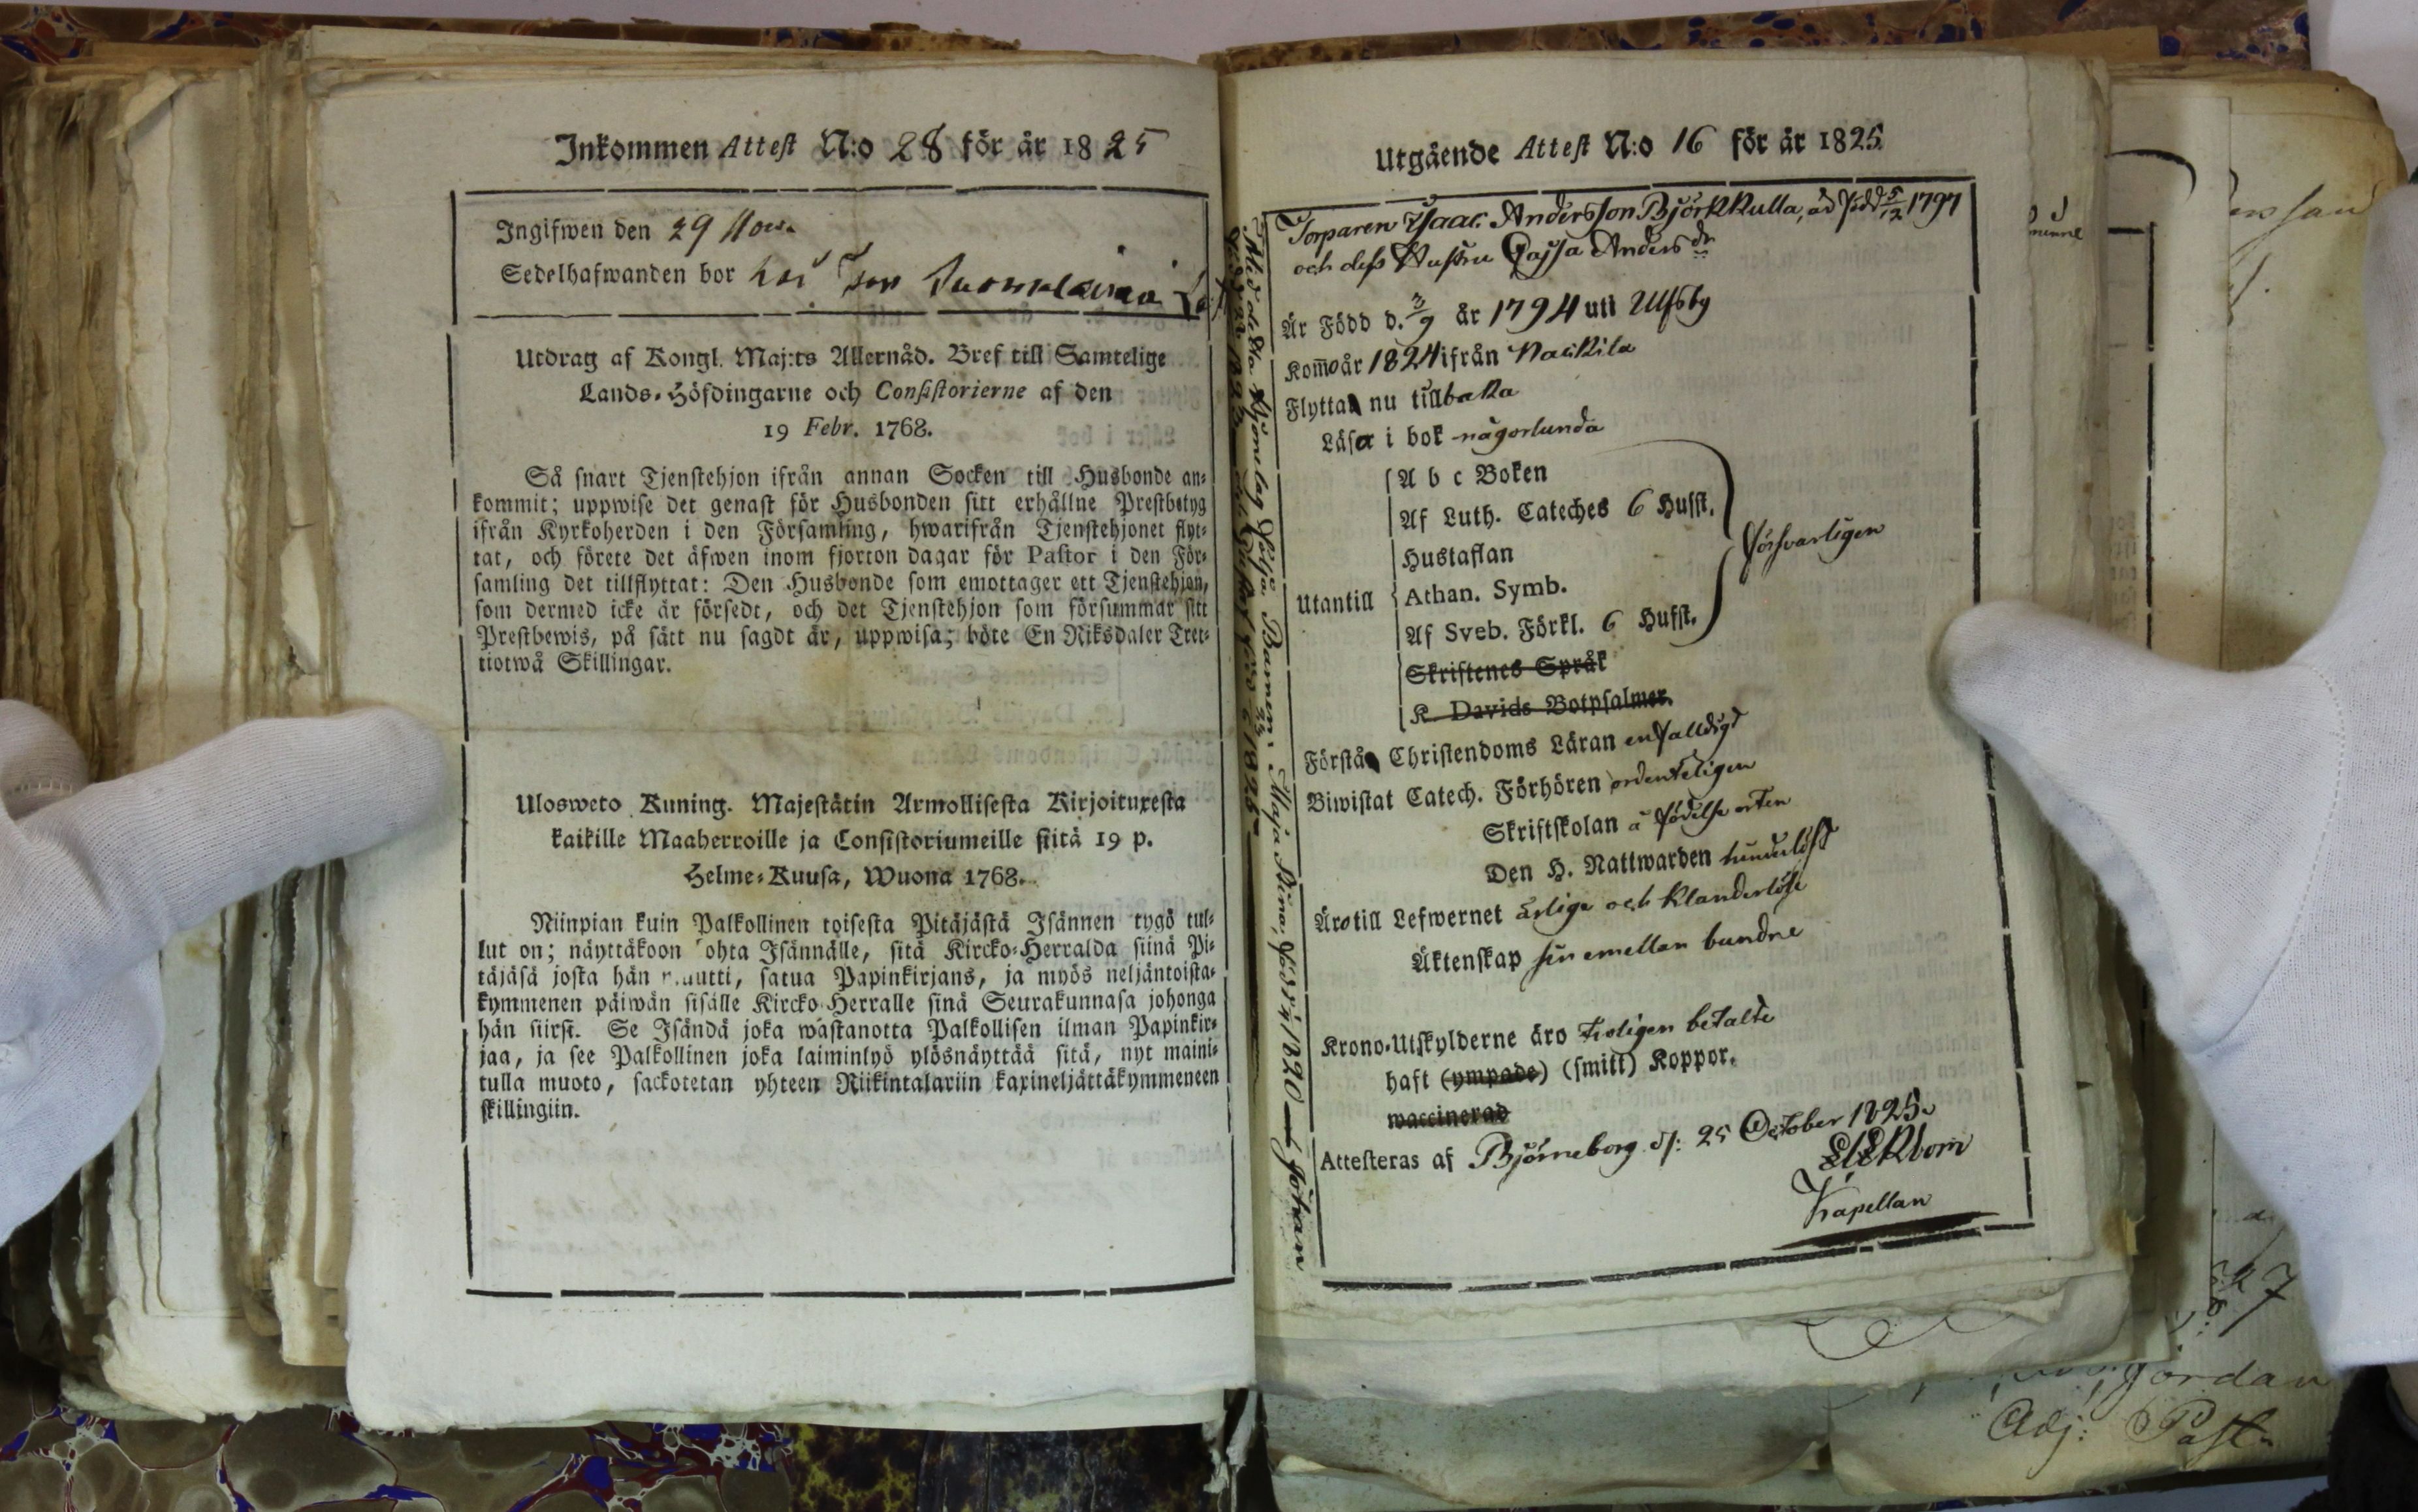 Inkommen Attest N:o 28 för år 1825
Ingifwen den 29 Nov.
Sedelhafwanden bor hos
Utdrag af Kongl. Maj:ts Allernåd. Bref till Samtelige
Lands-Höfdingarne och Consistorierne af den
19 Febr. 1768.
Så snart Tjenstehjon ifrån annan Socken till Husbonde an-
kommit; uppwise det genast för Husbonden sitt erhållne Prestbetyg
ifrån Kyrkoherden i den Församling, hwarifrån Tjenstehjonet flyt-
tat, och förete det äfwen inom fjorton dagar för Pastor i den För-
samling det tillflyttat: Den Husbonde som emottager ett Tjenstehjon,
som dermed icke är försedt, och det Tjenstehjon som försummar sitt
Prestbewis, på sätt nu sagdt är, uppwisa; böte En Riksdaler Tret-
tiotwå Skillingar.
Ulosweto Kuning. Majestätin Armollisesta Kirjoituxesta
kaikille Maaherroille ja Consistoriumeille siitä 19 p.
Helme-Kuusa, Wuona 1768.
Niinpian kuin Palkollinen toisesta Pitäjästä Isännen tygö tul-
lut on; näyttäkoon ohta Isännälle, sitä Kircko-Herralda siinä Pi-
täjäsä josta hän muutti, satua Papinkirjans, ja myös neljäntoista-
kymmenen päiwän sisälle Kircko-Herralle sinä Seurakunnasa johonga
hän siirst. Se Isändä joka wastanotta Palkollisen ilman Papinkir-
jaa, ja see Palkollinen joka laiminlyö ylösnäyttää sitä, nyt maini-
tulla muoto, sackotetan yhteen Riikintalariin kaxineljättäkymmeneen
skillingiin.
Utgående Attest N:o 16 för år 1825
Torparen Isaac Andersson Björkkulla, är född 5/12 1797
och dess Hustru Cajsa Andersdr
Är Född d. 3/9 år 1794 uti Ulfsby
Kom̄o år 1824 ifrån Nackila
Flytta nu tillbaka
Läsa i bok någorlunda
Utantill
A b c Boken
Af Luth. Cateches 6 Hufst.
Hustaflan
Athan. Symb.
Af Sveb. Förkl. 6 Hufst.
försvarligen
Skriftenes Språk
K. Davids Botpsalmer.
Förstå Christendoms Läran enfalldigt
Biwistat Catech. Förhören ordenteligen
Skriftskolan å födelse orten
Den H. Nattwarden
Äro till Lefwernet ärlige och klanderlöse
Äktenskap sin emellan bundne
Krono-Utskylderne äro tideligen betalte
haft (ympade) (smitt) Koppor.
waccinerad
Attesteras af Björneborg d: 25 October 1825.
Ekbom
Kapellan
Med detta Hjonelag följa Barnen: Maja Stina, född 1820 Johan
Adj: Past.